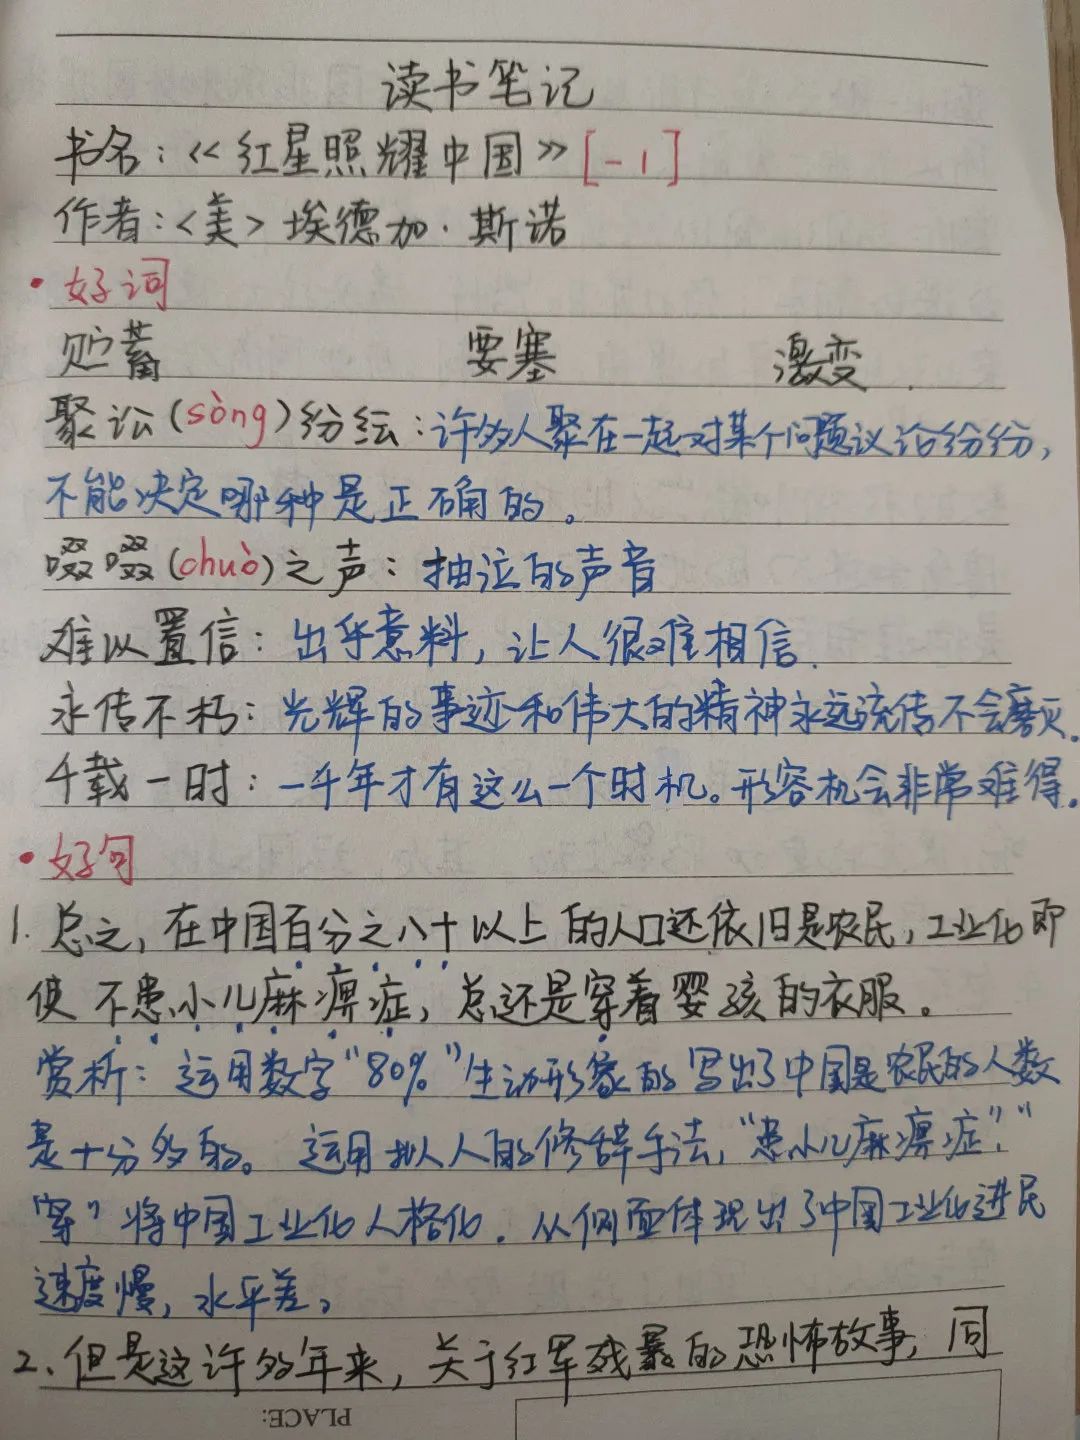 读书笔记
书名:《红星照耀中国》[-1]
作者:<美>埃德加·斯诺
·好词
贮蓄 要塞 激变
聚讼(sòng)纷纭:许多人聚在一起对某个问题议论纷纷,
不能决定哪种是正确的。
啜啜(chuò)之声:抽泣的声音
难以置信:出乎意料,让人很难相信.
永传不朽:光辉的事迹和伟大的精神永远流传不会磨灭.
千载一时:一千年才有这么一个时机。形容机会非常难得.
·好句
1.总之,在中国百分之八十以上的人口还依旧是农民,工业化即
使不患小儿麻痹症,总还是穿着婴孩的衣服。
赏析:运用数字“80%”生动形象的写出了中国是农民的人数
是十分多的。运用拟人的修辞手法,“患小儿麻痹症”,“
“穿”将中国工业化人格化.从侧面体现出了中国工业化进民
速度慢,水平差。
2.但是这许多年来,关于红军残暴的恐怖故事,同
PLACE: